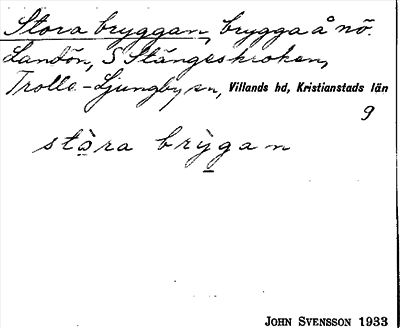 Stora bryggan, brygga å nö.
Landön, S Stångeskroken,
Trolle-Ljungby sn, Villands hd, Kristianstads län
9
stòra brỳgan
JOHN SVENSSON 1933